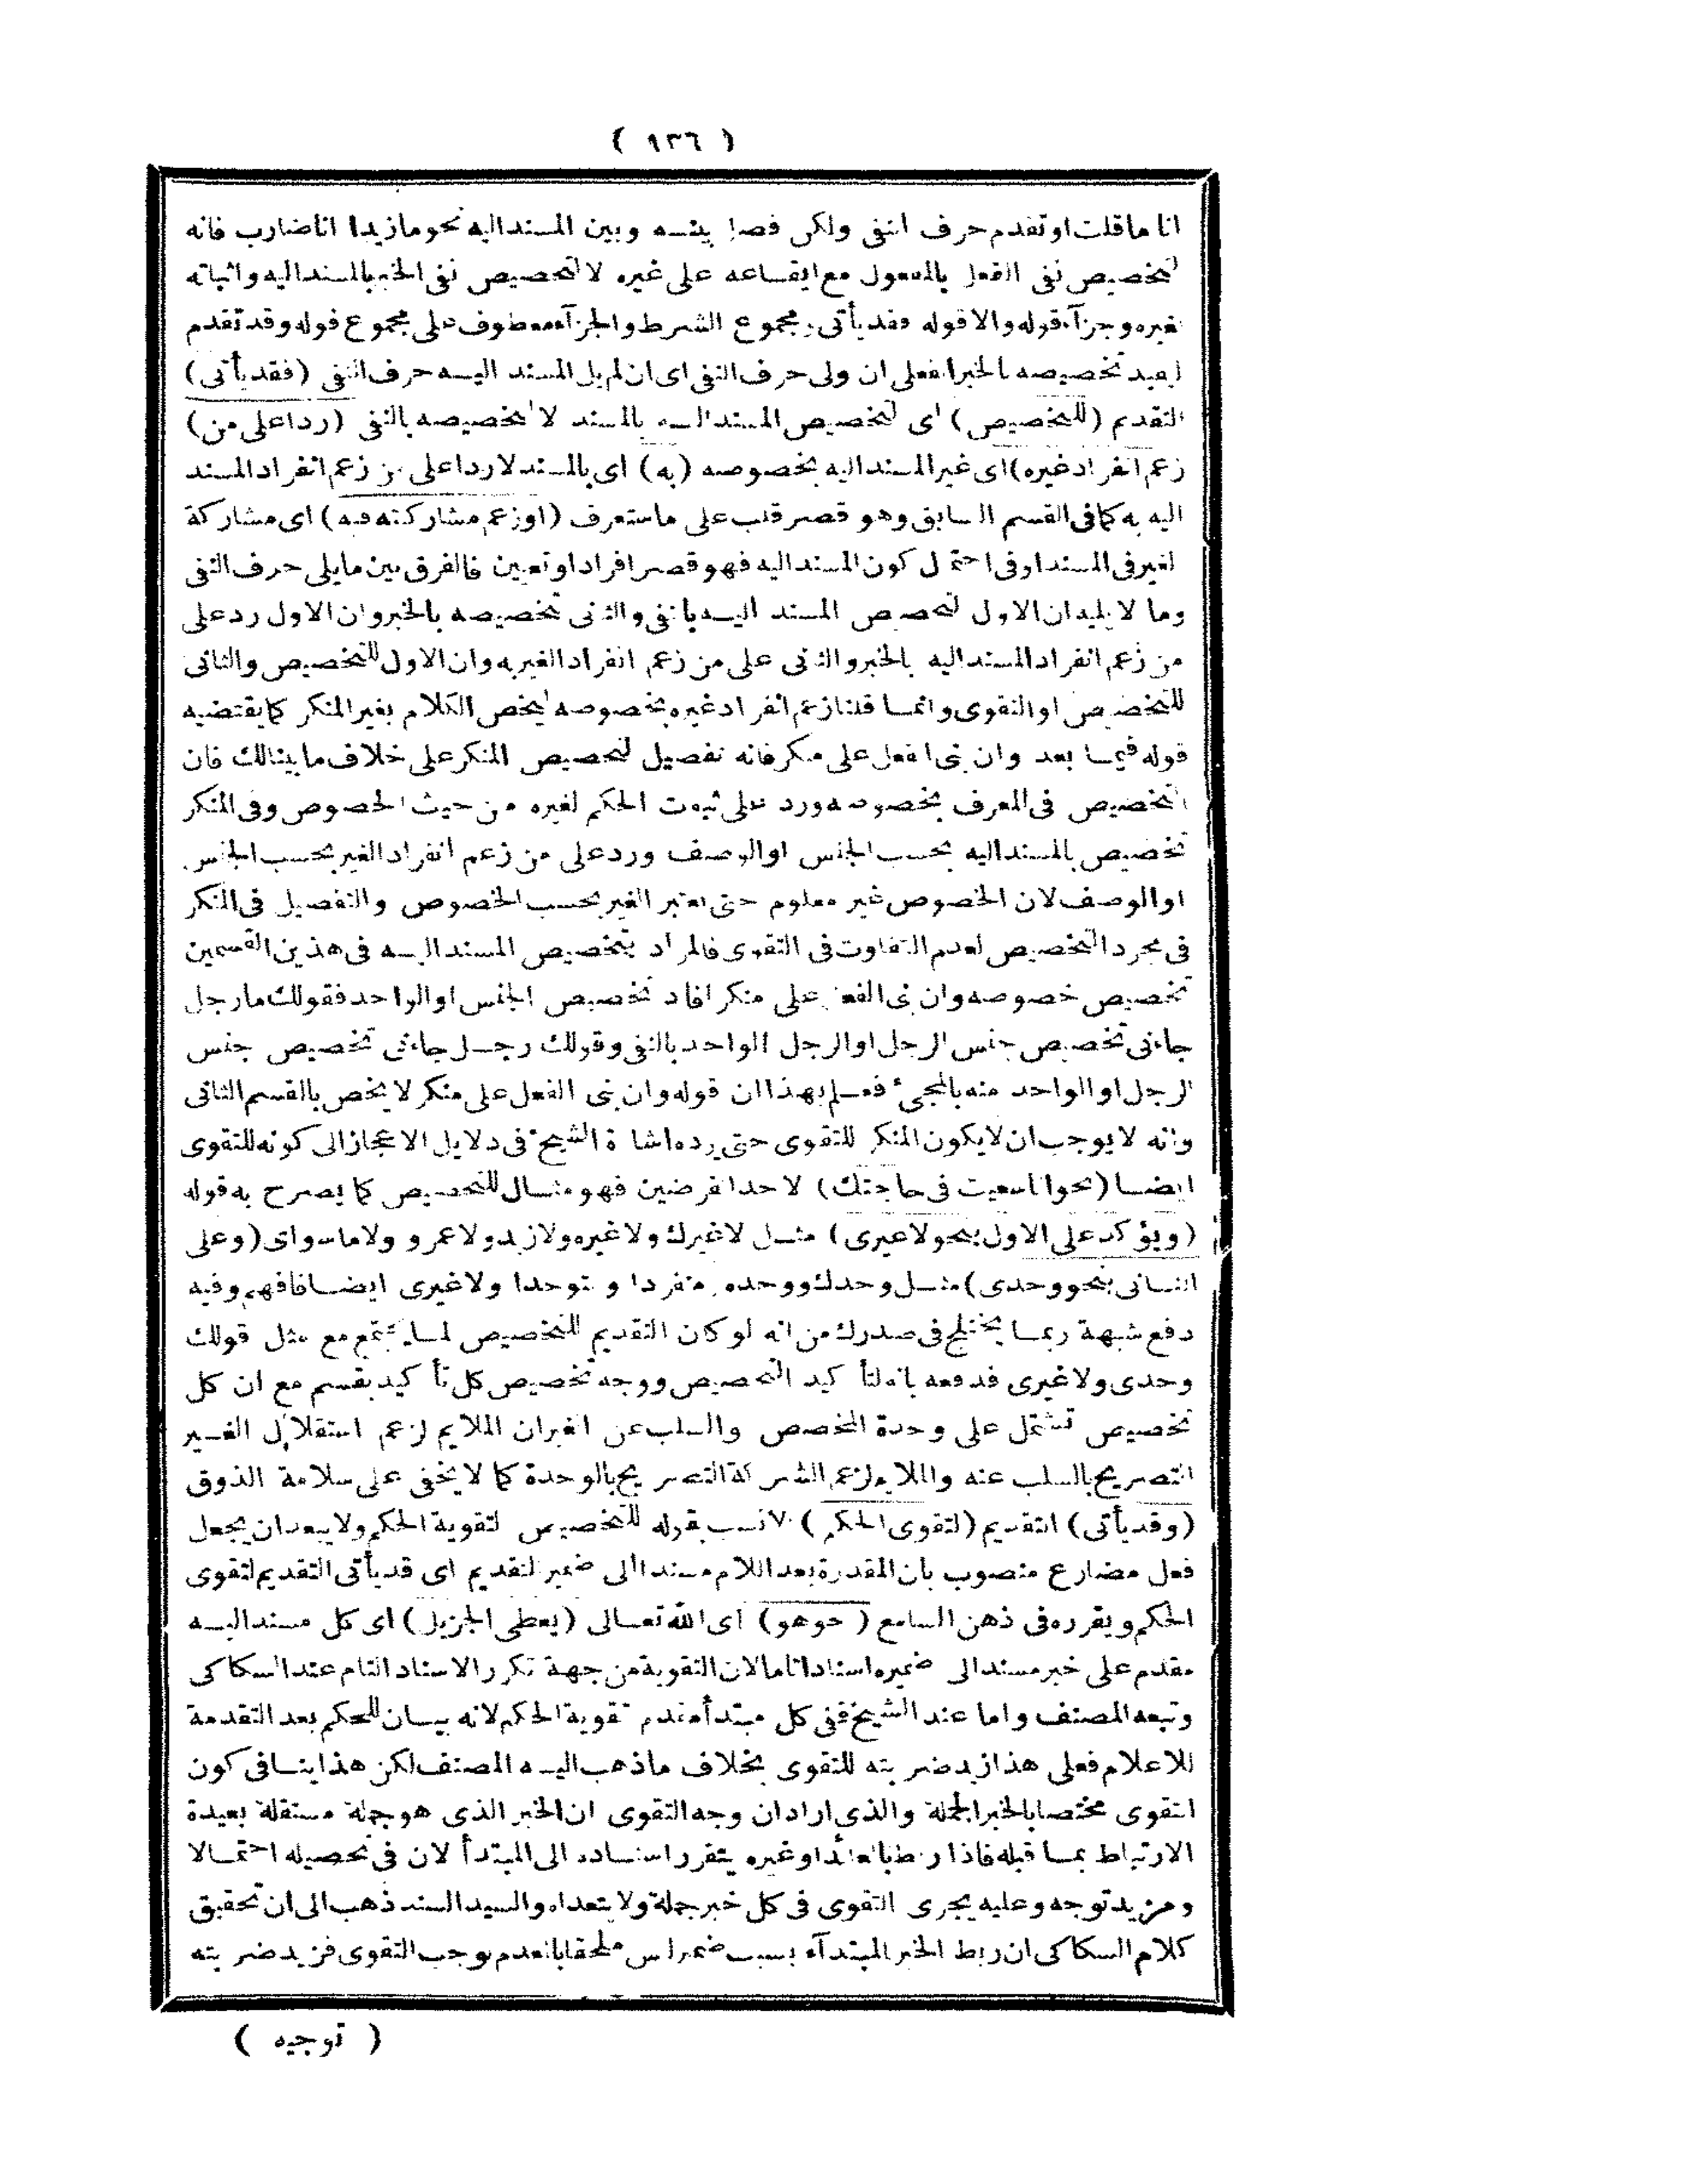 ( ١٣٦ )
انا ما قلت او تقدم حرف النفى ولكن فصل بينـه وبين المسند اليه نحو ما زيدا انا ضارب فانه
لتخصيص نفى الفعل بالمفعول مع ايقـاعه على غيره لا لتخصيص نفى الخبر بالمسند اليه واثباته
لغيره وجزآء قوله والا قوله فقد يأتى ومجموع الشرط والجزآء معطوف على مجموع قوله وقد تقدم
ليفيد تخصيصه بالخبر الفعلى ان ولى حرف النفى اى ان لم يل المسند اليـه حرف النفى (فقد يأتى)
التقديم (للتخصيص) اى لتخصيص المسند اليـه بالمسند لا لتخصيصه بالنفى (ردا على من)
زعم انفراد غيره) اى غير المسند اليه بخصوصه (به) اى بالمسند لا ردا على من زعم انفراد المسند
اليه به كما فى القسم السابق وهو قصر قلب على ما ستعرف (او زعم مشاركته فيه) اى مشاركة
لغير فى المسند او فى احتمال كون المسند اليه فهو قصر افراد او تعيين فالفرق بين ما يلى حرف النفى
وما لا يليه ان الاول لتخصيص المسند اليـه بالنفى والثانى تخصيصه بالخبر وان الاول رد على
من زعم انفراد المسند اليه بالخبر والثانى على من زعم انفراد الغير به وان الاول للتخصيص والثانى
للتخصيص او التقوى وانمـا قلنا زعم انفراد غيره بخصوصه ليخص الكلام بغير المنكر كما يقتضيه
قوله فيمـا بعد وان بنى الفعل على منكر فانه تفصيل لتخصيص المنكر على خلاف ما بينالك فان
التخصيص فى المعرف بخصوصه ورد على ثبوت الحكم لغيره من حيث الخصوص وفى المنكر
تخصيص بالمسند اليه بحسب الجنس او الوصف ورد على من زعم انفراد الغير بحسب الجنس
او الوصف لان الخصوص غير معلوم حتى يعتبر الغير بحسب الخصوص والتفصيل فى المنكر
فى مجرد التخصيص لعدم التفاوت فى التقوى فالمراد بتخصيص المسند اليـه فى هذين القسمين
تخصيص خصوصه وان بنى الفعل على منكر افاد تخصيص الجنس او الواحد فقولك ما رجل
جاءنى تخصيص جنس الرجل او الرجل الواحد بالنفى وقولك رجـل جاءنى تخصيص جنس
الرجل او الواحد منه بالمجئ فعـلم بهذا ان قوله وان بنى الفعل على منكر لا يخص بالقسم الثانى
وانه لا يوجب ان لا يكون المنكر للتقوى حتى يرده اشارة الشيخ فى دلايل الاعجاز الى كونه للتقوى
ايضـا (نحو انا سعيت فى حاجتك) لاحد الفرضين فهو مثـال للتخصيص كما يصرح به قوله
(ويؤكد على الاول بنحو لا غيرى) مثـل لا غيرك ولا غيره ولا زيد ولا عمرو ولا ما سواى (وعلى
الثـانى بنحو وحدى) مثـل وحدك ووحده منفردا و متوحدا ولا غيرى ايضـا فافهم وفيه
دفع شبهة ربمـا يختلج فى صدرك من انه لو كان التقديم للتخصيص لمـا يجتمع مع مثل قولك
وحدى ولا غيرى فدفعه بانه لتأكيد التخصيص ووجه تخصيص كل تأكيد بقسم مع ان كل
تخصيص تشتمل على وحدة المخصص والسلب عن الغير ان الملايم لزعم استقلال الغـير
التصريح بالسلب عنه والملايم لزعم الشركة التصريح بالوحدة كما لا يخفى على سلامة الذوق
(وقد يأتى) التقديم (لتقوى الحكم) الانسب بقوله للتخصيص لتقوية الحكم ولا يبعد ان يجعل
فعل مضارع منصوب بان المقدرة بعد اللام مسندا الى ضمير التقديم اى قد يأتى التقديم لتقوى
الحكم ويقرره فى ذهن السامع (نحو هو) اى الله تعـالى (يعطى الجزيل) اى كل مسند اليـه
مقدم على خبر مسند الى ضميره اسنادا تاما لان التقوية من جهة تكرر الاسناد التام عند السكاكى
وتبعه المصنف واما عند الشيخ ففى كل مبتدأ مقدم تقوية الحكم لانه بيـان للحكم بعد التقدمة
للاعلام فعلى هذا زيد ضربته للتقوى بخلاف ما ذهب اليـه المصنف لكن هذا ينـافى كون
التقوى مختصا بالخبر الجملة والذى اراد ان وجه التقوى ان الخبر الذى هو جملة مستقلة بعيدة
الارتباط بمـا قبله فاذا ربط بالعائد او غيره يتقرر اسنـاده الى المبتدأ لان فى تحصيله احتمـالا
ومزيد توجه وعليه يجرى التقوى فى كل خبر جملة ولا يتعداه والسيد السند ذهب الى ان تحقيق
كلام السكاكى ان ربط الخبر المبتدآء بسبب ضمير ليس ملحقا بالعدم يوجب التقوى فزيد ضربته
( توجيه )